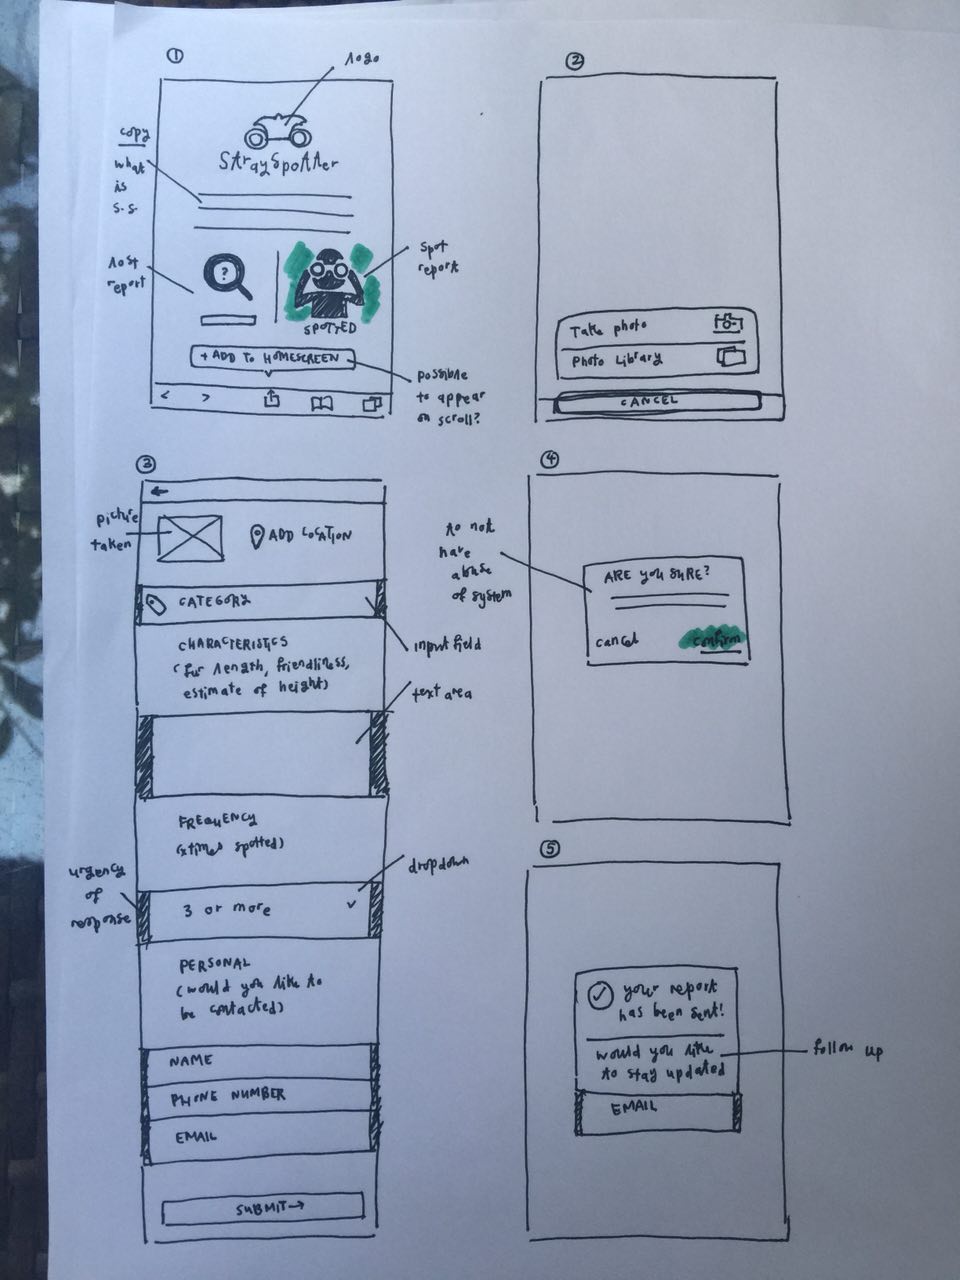 ①
logo
copy
what
is
s.s.
StraySpotter
lost
report
?
spot
report
SPOTTED
+ ADD TO HOMESCREEN
possible
to appear
on scroll?
②
Take photo
Photo Library
CANCEL
③
picture
taken
ADD LOCATION
CATEGORY
input field
CHARACTERISTICS
(fur length, friendliness,
estimate of height)
text area
FREQUENCY
(x times spotted)
dropdown
urgency
of
response
3 or more
PERSONAL
(would you like to
be contacted)
NAME
PHONE NUMBER
EMAIL
SUBMIT→
④
to not
have
abuse
of system
ARE YOU SURE?
cancel
confirm
⑤
your report
has been sent!
would you like
to stay updated
follow up
EMAIL